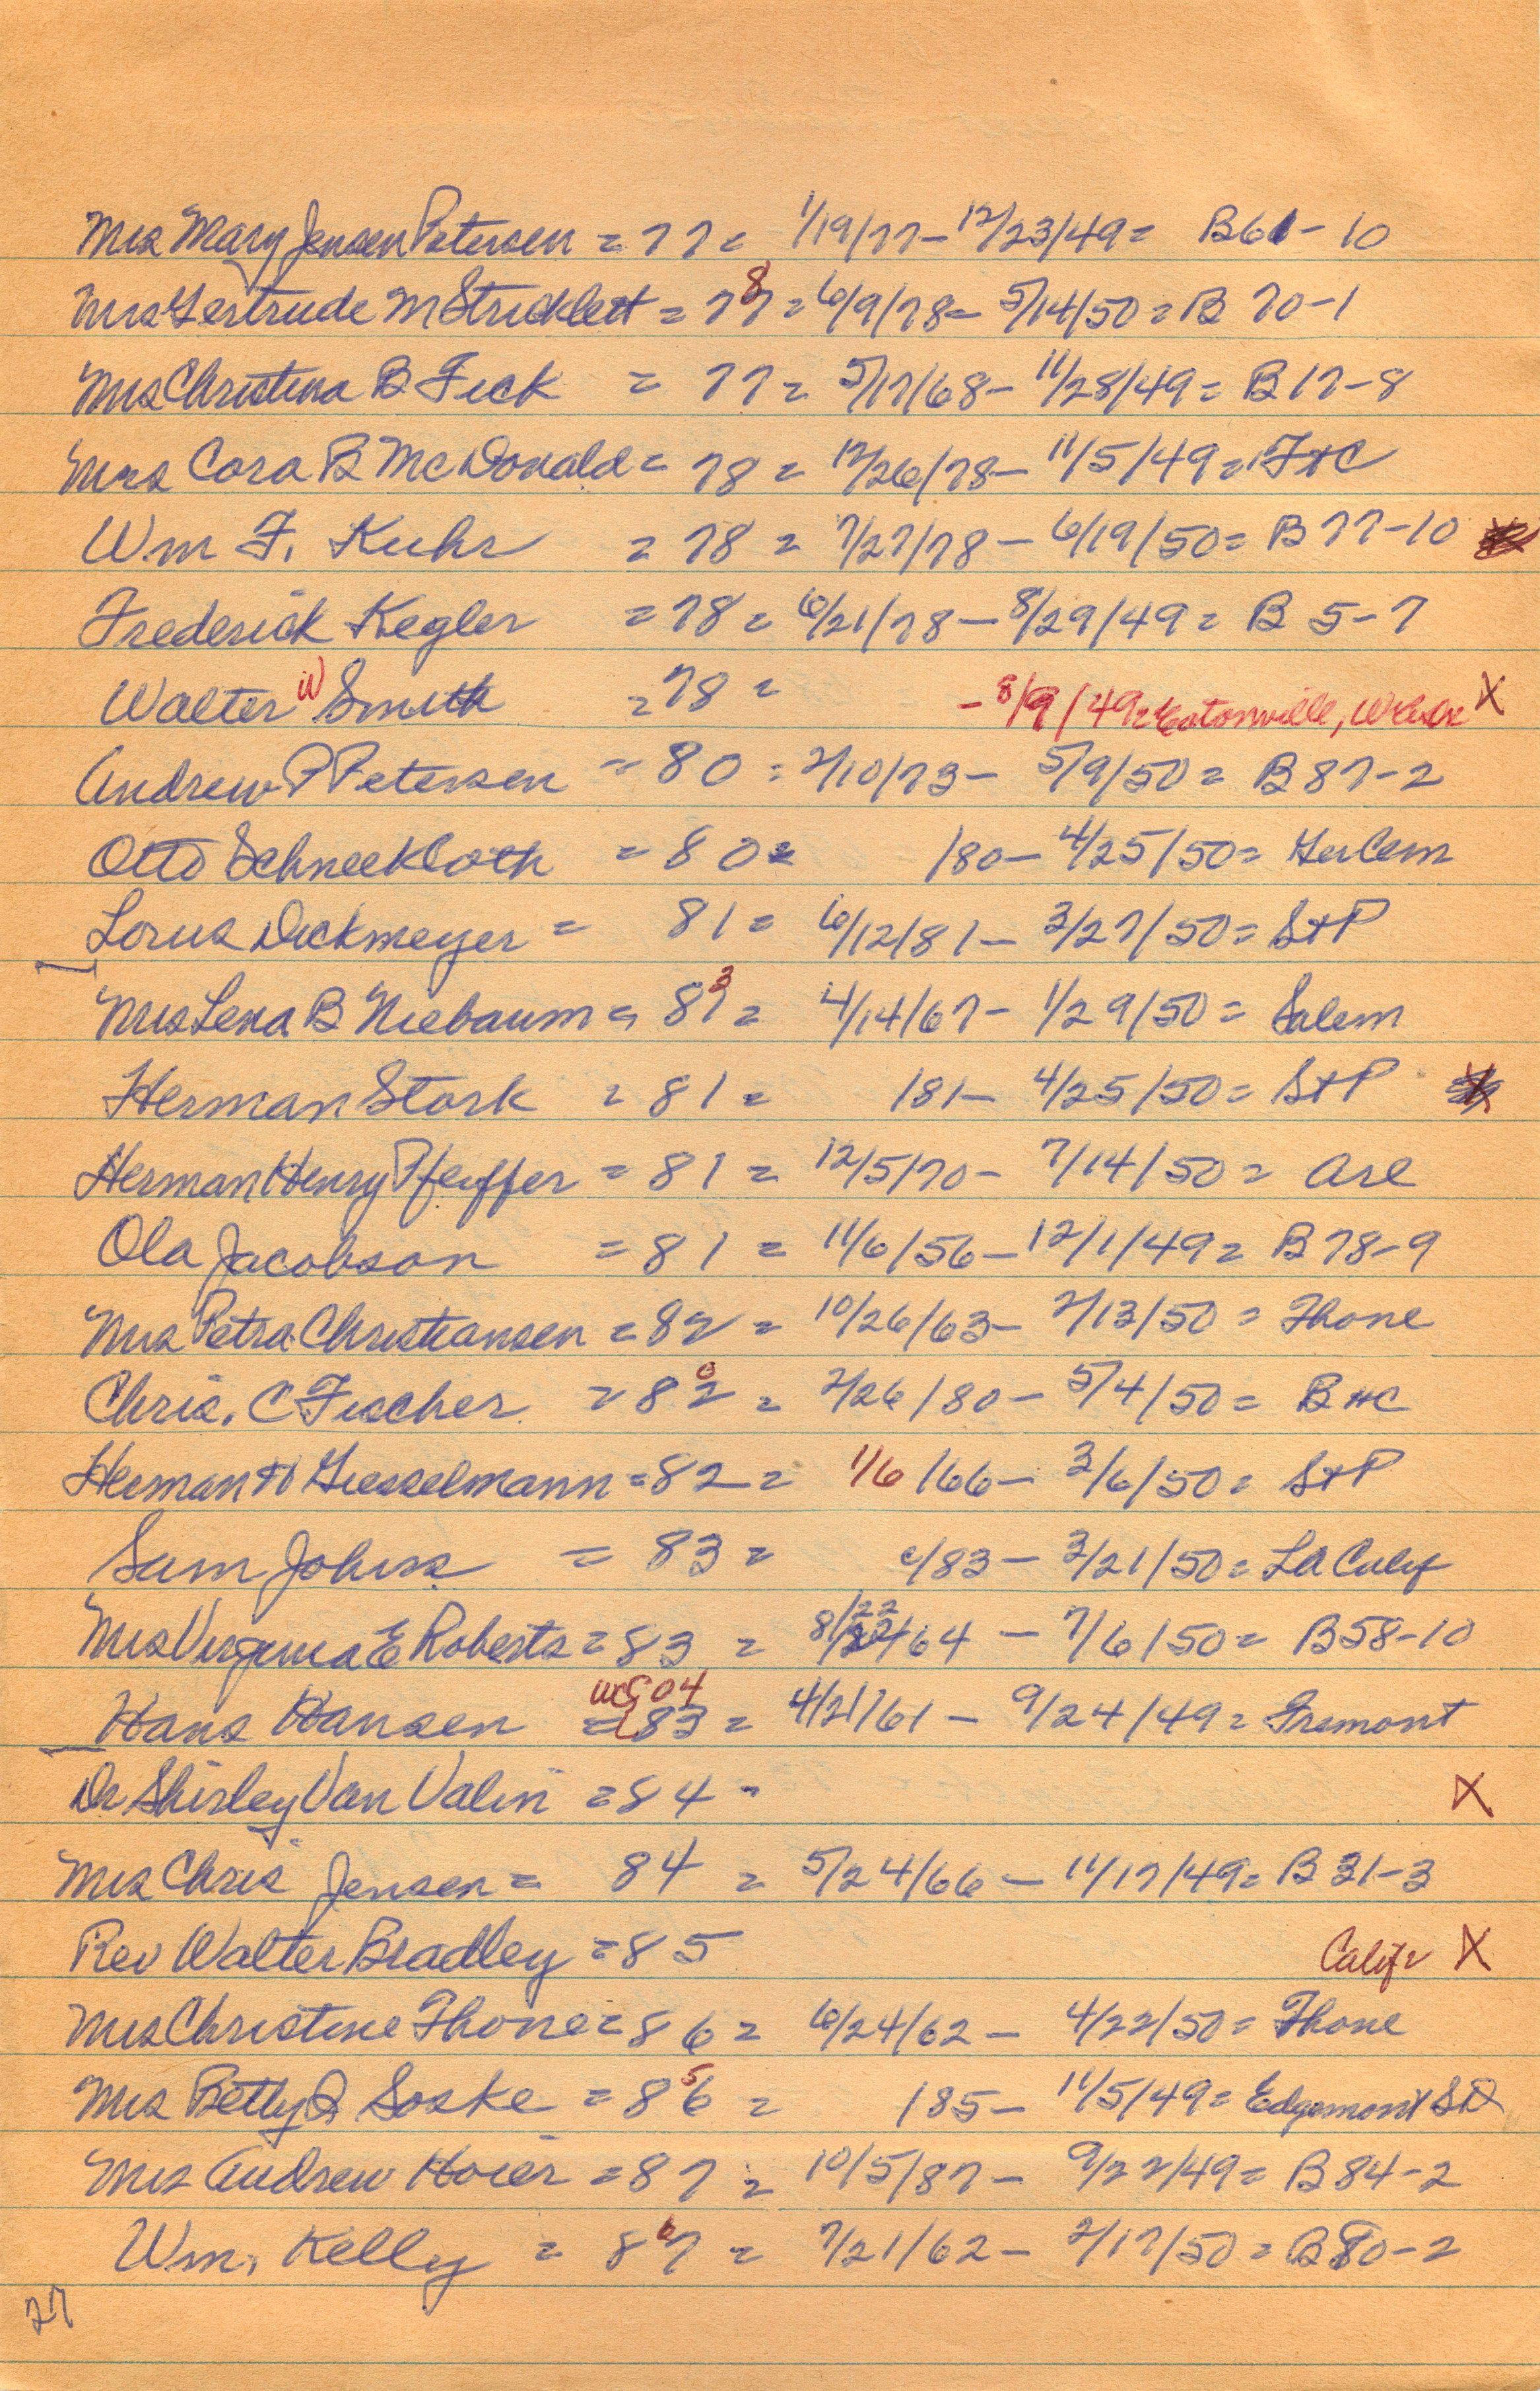 Mrs Mary Jensen Petersen = 77 = 1/19/77 - 12/23/49 = B61-10
Mrs Gertrude M Stricklett = 77 8 = 6/9/78 - 5/14/50 = B 70-1
Mrs Christina B Fick = 77 = 5/17/68 - 11/28/49 = B17-8
Mrs Cora B McDonald = 78 = 12/26/78 - 11/5/49 = FHC
Wm F. Kuhr = 78 = 7/27/78 - 6/19/50 = B 77-10
Frederick Kegler = 78 = 6/21/78 - 8/29/49 = B 5-7
Walter W Smith = 78 = - 8/9/49 = Eatonville, Wash X
Andrew P Petersen = 80 = 2/10/73 - 5/9/50 = B 87-2
Otto Schneekloth = 80 = /80 - 4/25/50 = Ger Cem
Lorus Dickmeyer = 81 = 6/12/81 - 3/27/50 = St P
Mrs Lena B Niebaum = 81 3 = 4/14/67 - 1/29/50 = Salem
Herman Stork = 81 = /81 - 4/25/50 = St P
Herman Henry Pfeiffer = 81 = 12/5/70 - 7/14/50 = Arl
Ola Jacobson = 81 = 11/6/56 - 12/1/49 = B78-9
Mrs Petra Christiansen = 82 = 10/26/63 - 2/13/50 = Thone
Chris. C Fischer = 82 0 = 2/26/80 - 5/4/50 = BHC
Herman H Giesselmann = 82 = 1/6/66 - 3/6/50 = St P
Sam Johns = 83 = /83 - 3/21/50 = LA Calif
Mrs Virginia E Roberts = 83 = 8/22/64 - 7/6/50 = B58-10
Hans Hansen = 83 = 4/21/61 - 9/24/49 = Fremont
Dr Shirley Van Valin = 84 - X
Mrs Chris Jensen = 84 = 5/24/66 - 11/17/49 = B 31-3
Rev Walter Bradley = 85 Calif X
Mrs Christine Thone = 86 = 6/24/62 - 4/22/50 = Thone
Mrs Betty J Soske = 86 5 = /85 - 11/5/49 = Edgemont SD
Mrs Andrew Hoier = 87 = 10/5/87 - 9/22/49 = B 84-2
Wm. Kelly = 87 6 = 7/21/62 - 2/17/50 = B80-2
27